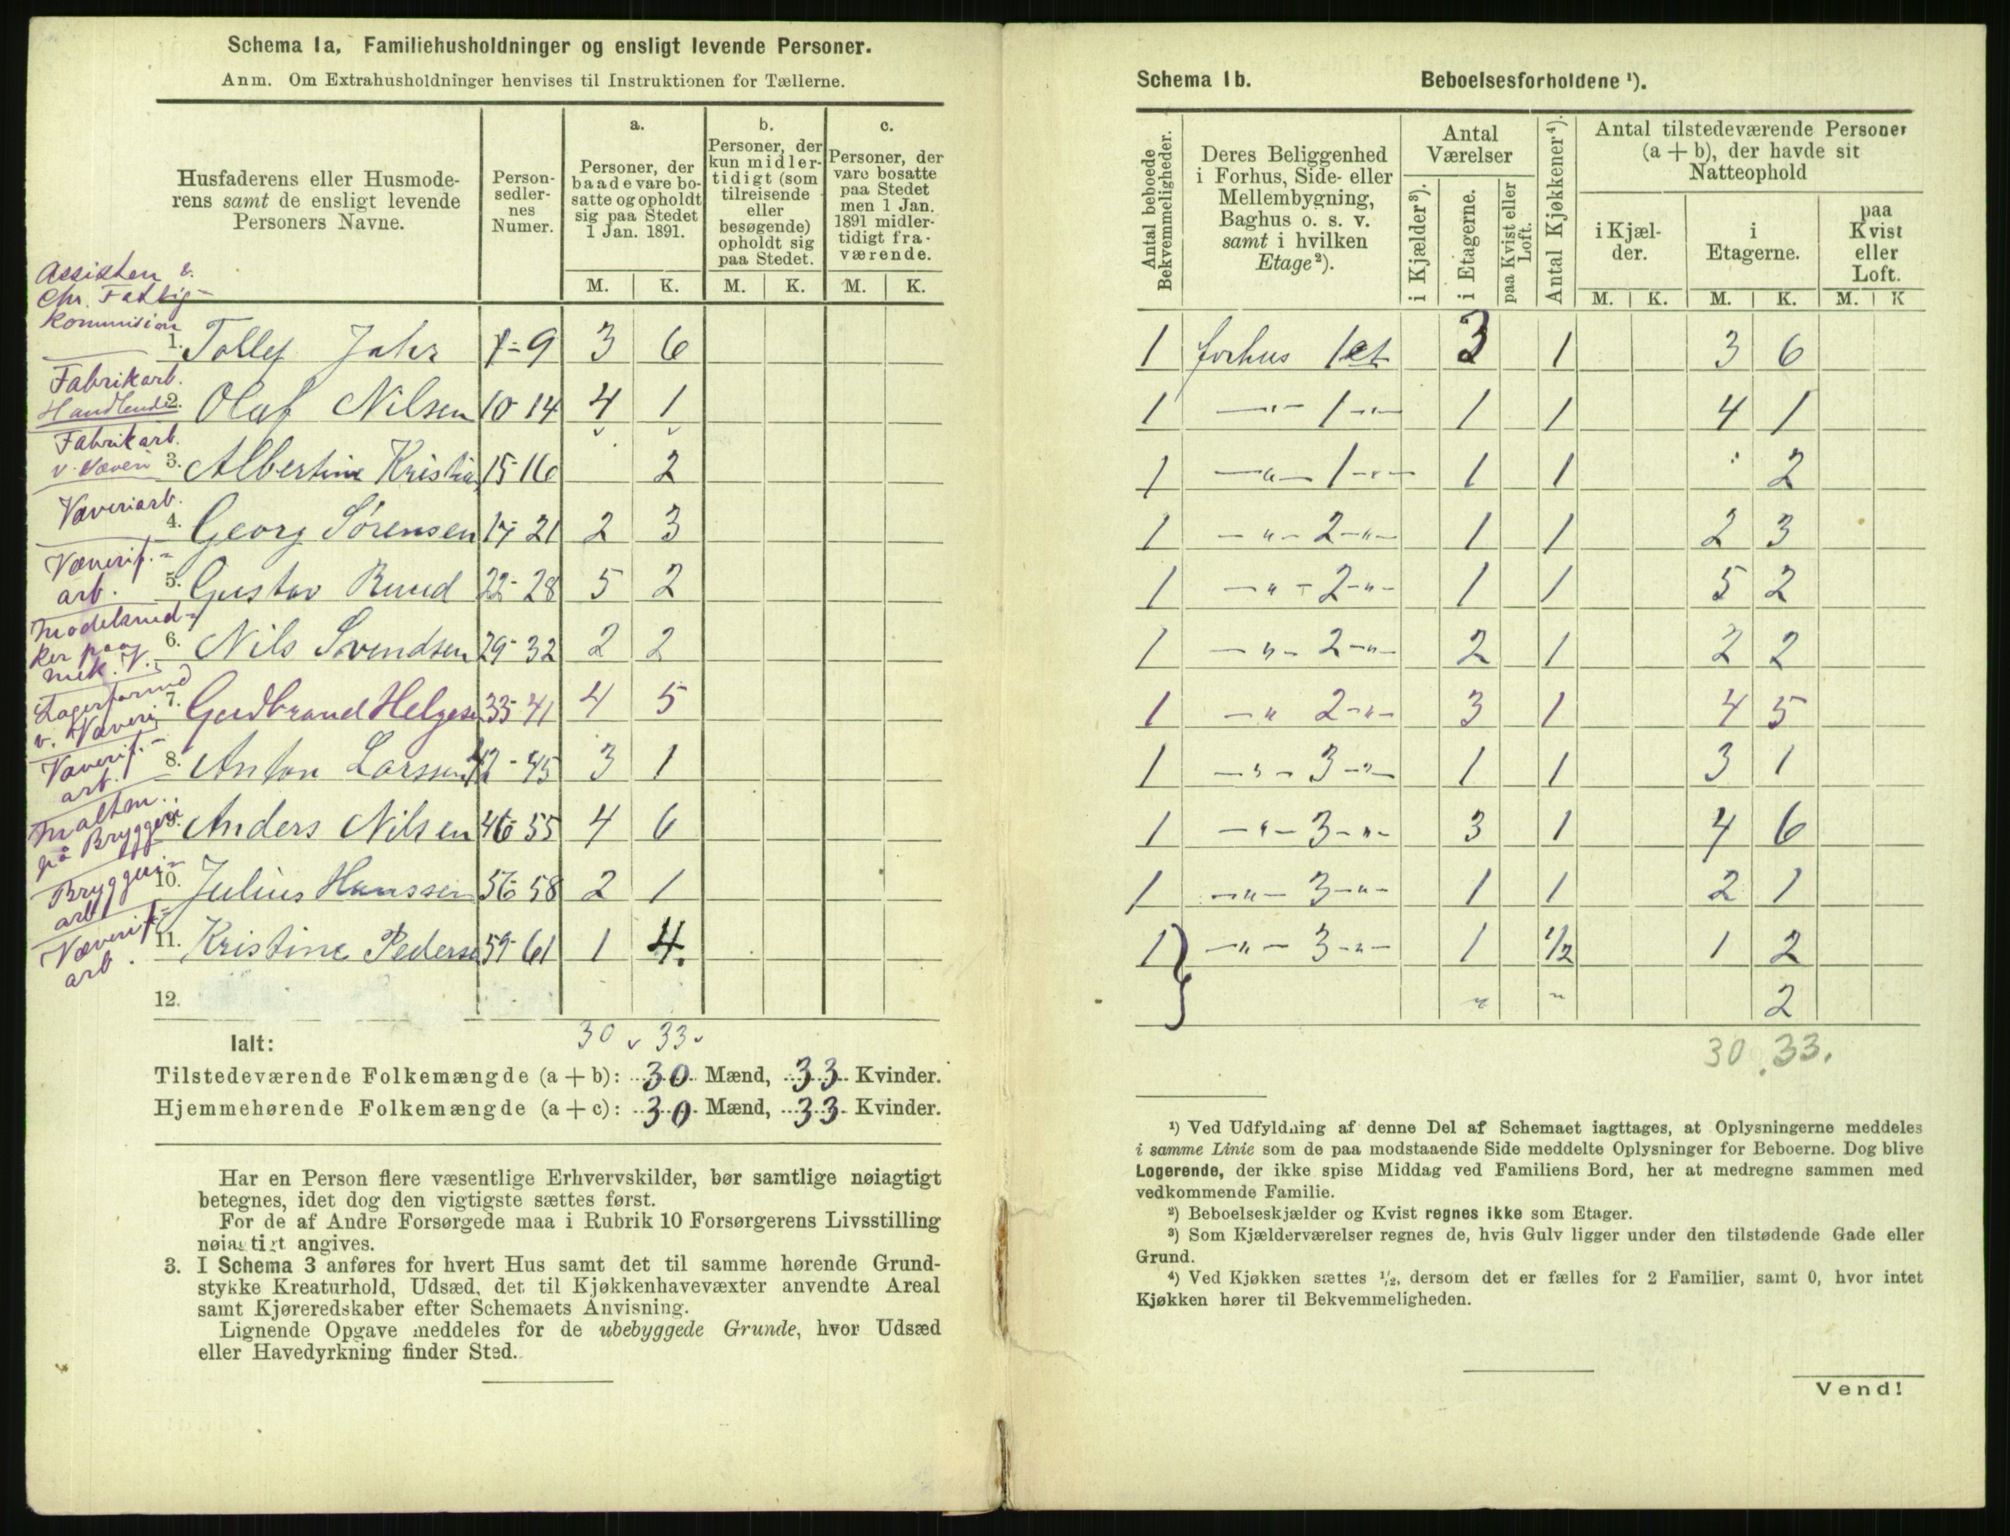 Schema 1a. Familiehusholdninger og ensligt levende Personer.
Anm. Om Extrahusholdninger henvises til Instruktionen for Tællerne.
Husfaderens eller Husmode-
rens samt de ensligt levende
Personers Navne.
Person-
sedler-
nes
Numer.
a.
Personer, der
baade vare bo-
satte og opholdt
sig paa Stedet
1 Jan. 1891.
b.
Personer, der
kun midler-
tidigt (som
tilreisende
eller
besøgende)
opholdt sig
paa Stedet.
c.
Personer, der
vare bosatte
paa Stedet
men 1 Jan.
1891 midler-
tidigt fra-
værende.
M. K. M. K. M. K.
Assisten v.
Chr. Fattig-
kommision
1. Tollef Jahr 1-9 3 6
Fabrikarb.
Handlende
2. Olaf Nilsen 10-14 4 1
Fabrikarb.
v. Væveri
3. Albertine Kristia 15-16 2
Væveriarb.
4. Georg Sørensen 17-21 2 3
Væverif.-
arb.
5. Gustav Ruud 22-28 5 2
Modelsned-
ker paa
mek. V.
6. Nils Svendsen 29-32 2 2
Lagerformd
v. Væveri
7. Gudbrand Helgese 33-41 4 5
Væverif.-
arb.
8. Anton Larssen 42-45 3 1
Malten..
på Bryggeri
9. Anders Nilsen 46-55 4 6
Bryggeri-
arb.
10. Julius Hanssen 56-58 2 1
Væverif-
arb.
11. Kristine Pederse 59-61 1 4.
12.
30 33
Ialt:
Tilstedeværende Folkemængde (a + b): 30 Mænd, 33 Kvinder.
Hjemmehørende Folkemængde (a + c): 30 Mænd, 33 Kvinder.
Har en Person flere væsentlige Erhvervskilder, bør samtlige nøiagtigt
betegnes, idet dog den vigtigste sættes først.
For de af Andre Forsørgede maa i Rubrik 10 Forsørgerens Livsstilling
nøiagtigt angives.
3. I Schema 3 anføres for hvert Hus samt det til samme hørende Grund-
stykke Kreaturhold, Udsæd, det til Kjøkkenhavevæxter anvendte Areal
samt Kjøreredskaber efter Schemaets Anvisning.
Lignende Opgave meddeles for de ubebyggede Grunde, hvor Udsæd
eller Havedyrkning finder Sted.
Schema 1b. Beboelsesforholdene ¹).
Antal beboede
Bekvemmeligheder.
Deres Beliggenhed
i Forhus, Side- eller
Mellembygning,
Baghus o. s. v.
samt i hvilken
Etage²).
Antal
Værelser
i Kjælder³).
i Etagerne.
paa Kvist eller
Loft.
Antal Kjøkkener⁴).
Antal tilstedeværende Personer
(a + b), der havde sit
Natteophold
i Kjæl-
der.
i
Etagerne.
paa
Kvist
eller
Loft.
M. K. M. K. M. K
1 forhus 1 et 3 1 3 6
1 -"- 1 -"- 1 1 4 1
1 -"- 1 -"- 1 1 2
1 -"- 2 -"- 1 1 2 3
1 -"- 2 -"- 1 1 5 2
1 -"- 2 -"- 2 1 2 2
1 -" 2 -"- 3 1 4 5
1 -"- 3 -"- 1 1 3 1
1 -"- 3 -"- 3 1 4 6
1 -"- 3 -"- 1 1 2 1
1 } -"- 3 -"- 1 1/2 1 2
" " 2
30 33.
¹) Ved Udfyldning af denne Del af Schemaet iagttages, at Oplysningerne meddeles
i samme Linie som de paa modstaaende Side meddelte Oplysninger for Beboerne. Dog blive
Logerende, der ikke spise Middag ved Familiens Bord, her at medregne sammen med
vedkommende Familie.
²) Beboelseskjælder og Kvist regnes ikke som Etager.
³) Som Kjælderværelser regnes de, hvis Gulv ligger under den tilstødende Gade eller
Grund.
⁴) Ved Kjøkken sættes ½, dersom det er fælles for 2 Familier, samt 0, hvor intet
Kjøkken hører til Bekvemmeligheden.
Vend!